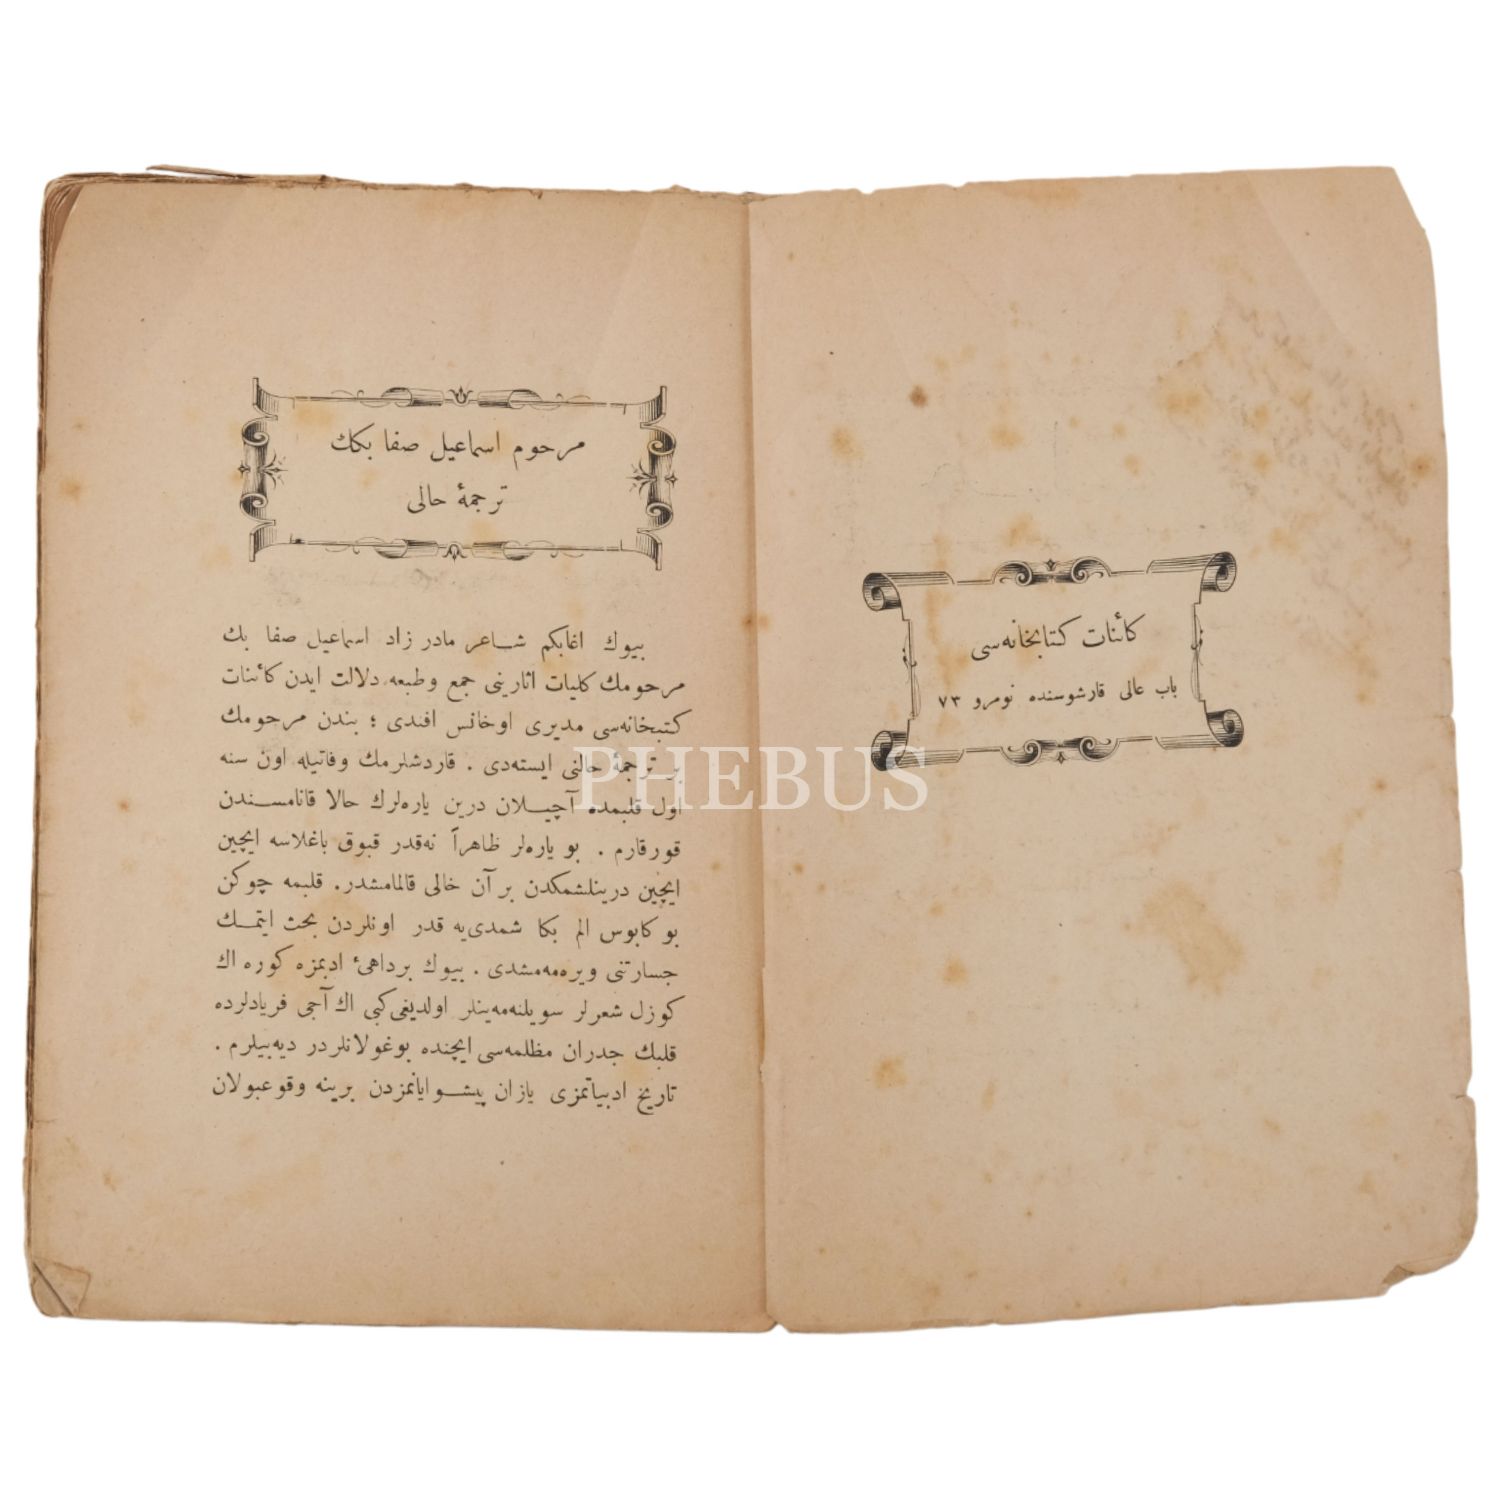 كائنات كتابخانه‌سی
باب عالی قارشوسنده نومرو ۷۳
مرحوم اسماعیل صفا بكك
ترجمهٔ حالی
بیوك اغابكم شاعر مادر زاد اسماعیل صفا بك
مرحومك كلیات اثارینی جمع وطبعه دلالت ایدن كائنات
كتبخانه‌سی مدیری اوخانس افندی ؛ بندن مرحومك
بر ترجمهٔ حالنی ایسته‌دی . قاردشلرمك وفاتیله اون سنه
اول قلبمده آچیلان درین یاره‌لرك حالا قانامسندن
قورقارم . بو یاره‌لر ظاهراً نه‌قدر قبوق باغلاسه ایچین
ایچین درینلشمكدن بر آن خالی قالمامشدر. قلبمه چوكن
بو كابوس الم بكا شمدی‌یه قدر اونلردن بحث ایتمك
جسارتنی ویره‌مه‌مشدی . بیوك برداهیٔ ادبمزه كوره اك
كوزل شعرلر سویلنه‌مه‌ینلر اولدیغی كبی اك آجی فریادلرده
قلبك جدران مظلمه‌سی ایچنده بوغولانلردر دیه‌بیلرم .
تاریخ ادبیاتمزی یازان پیشوایانمزدن برینه وقوعبولان
PHEBUS